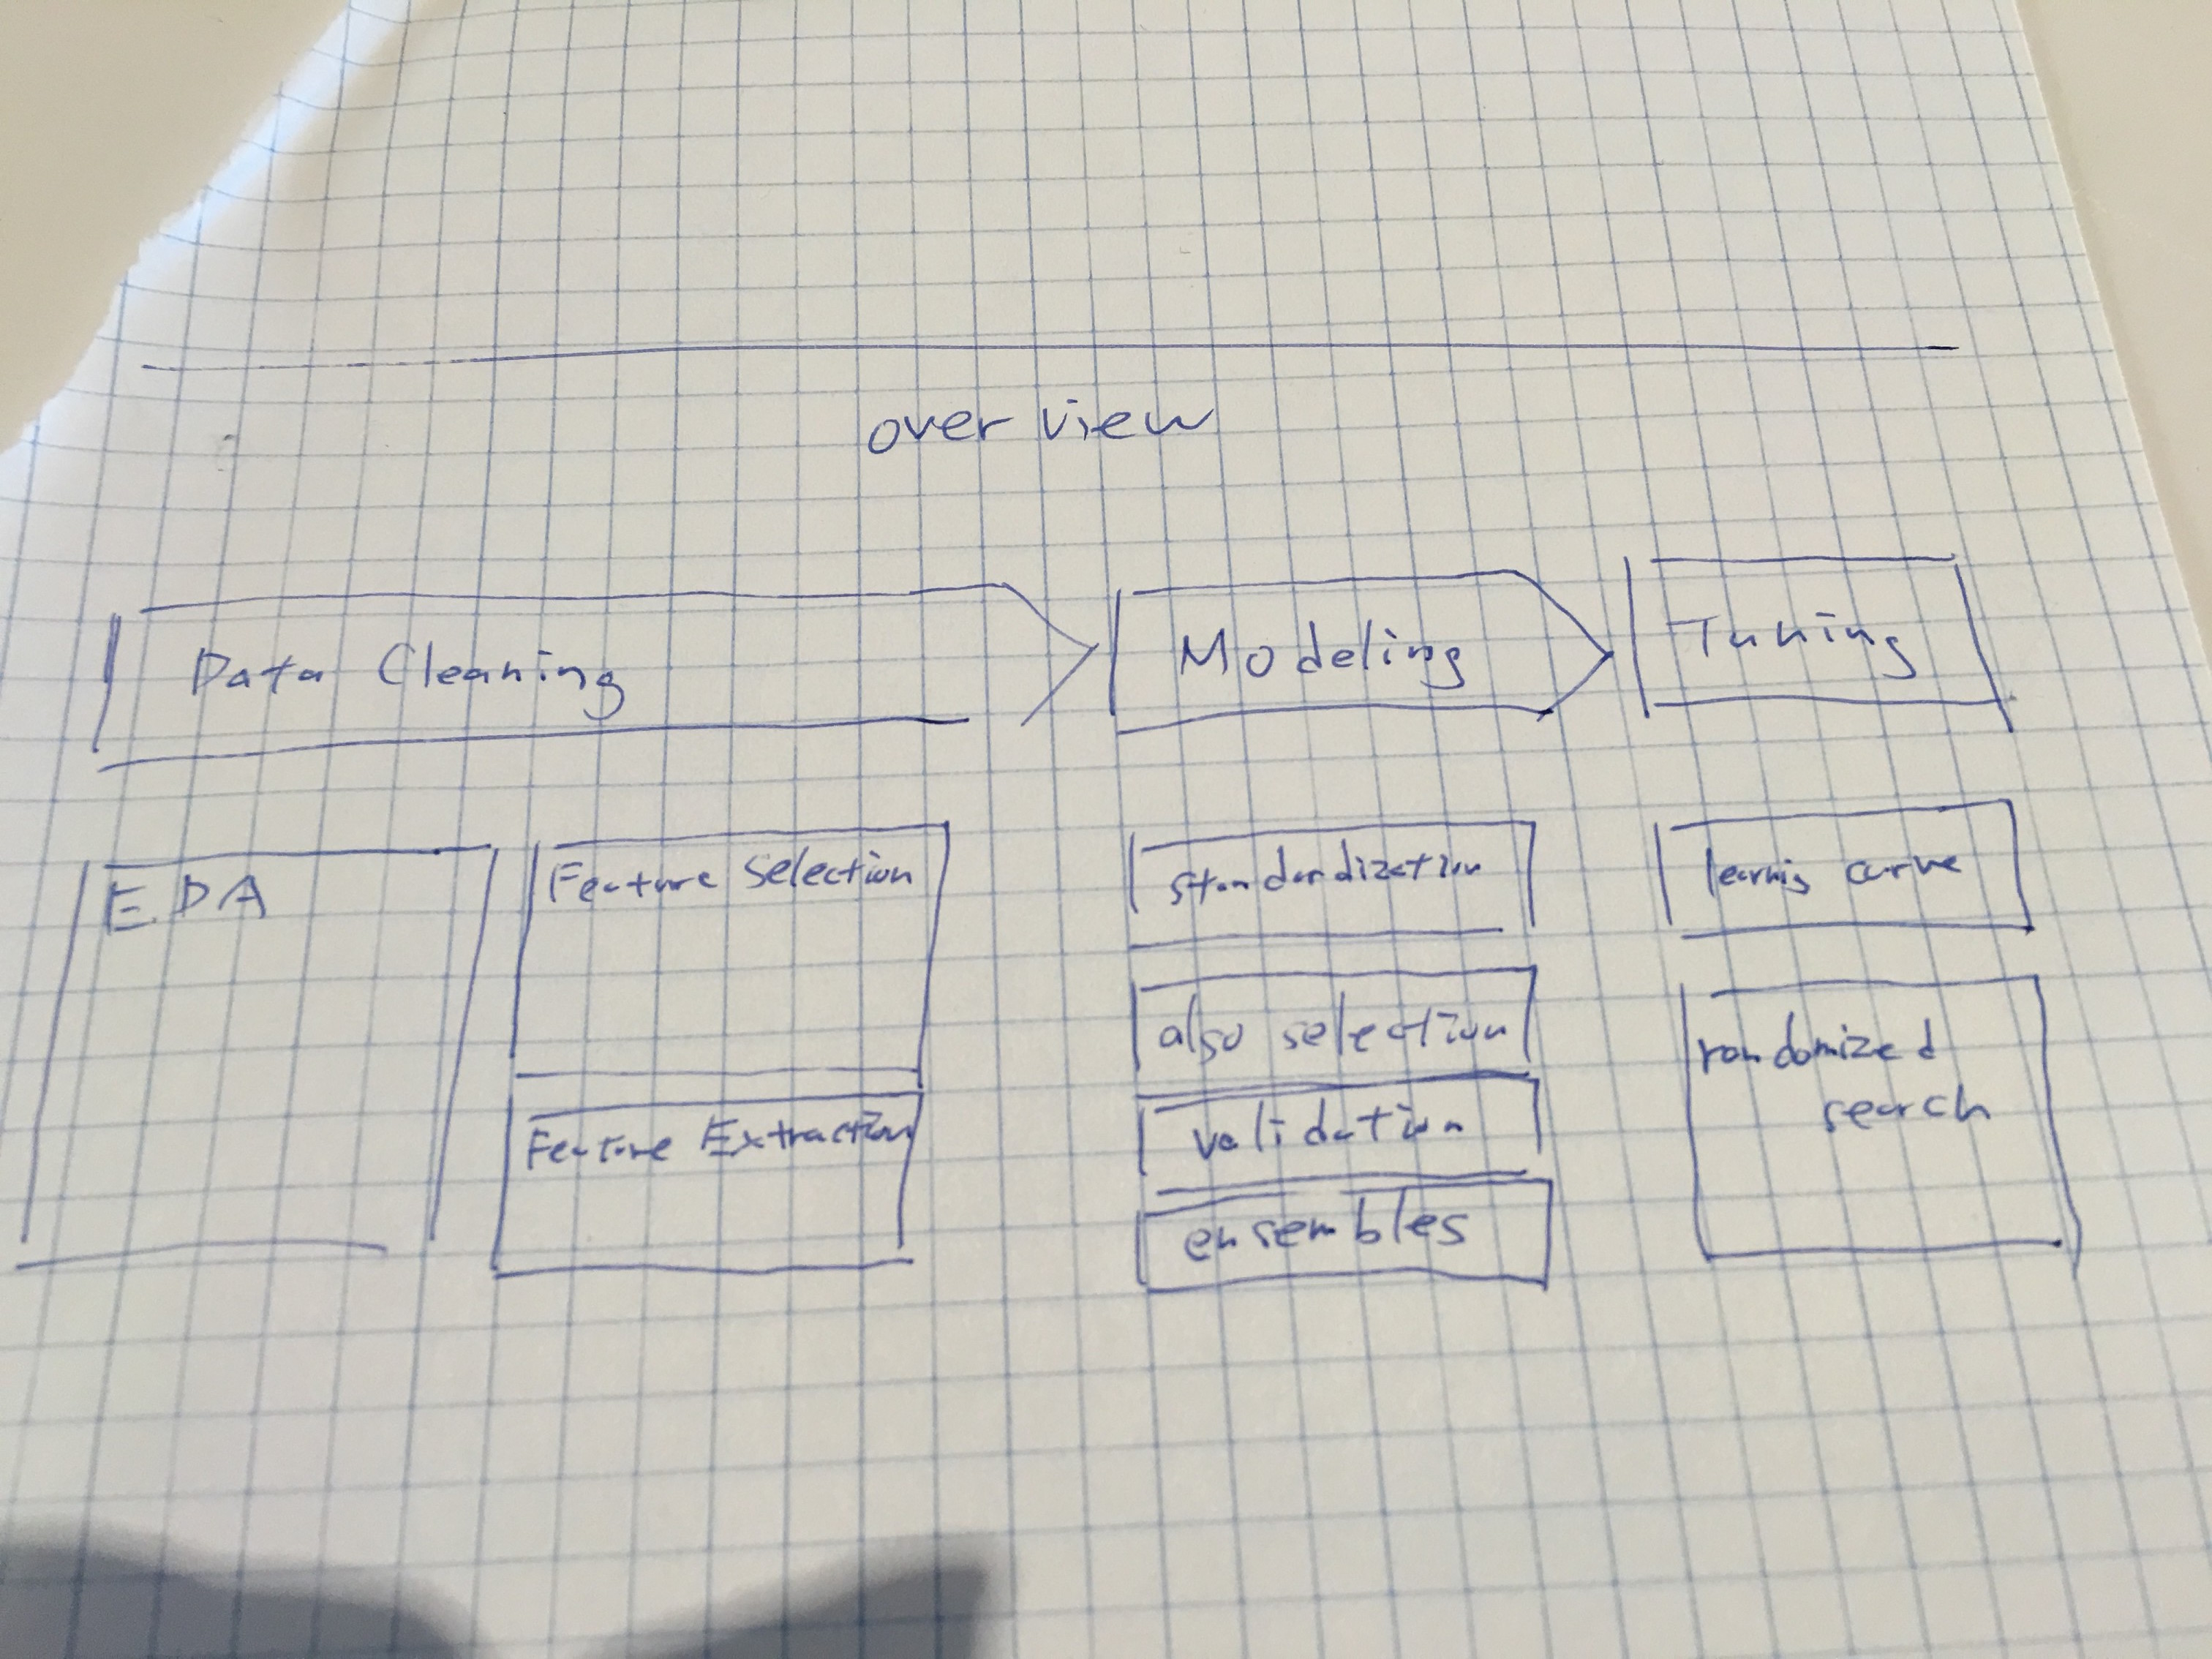 over view
Data Cleaning
Modeling
Tuning
EDA
Feature Selection
Feature Extraction
standardization
algo selection
validation
ensembles
learnig curve
randomized
search